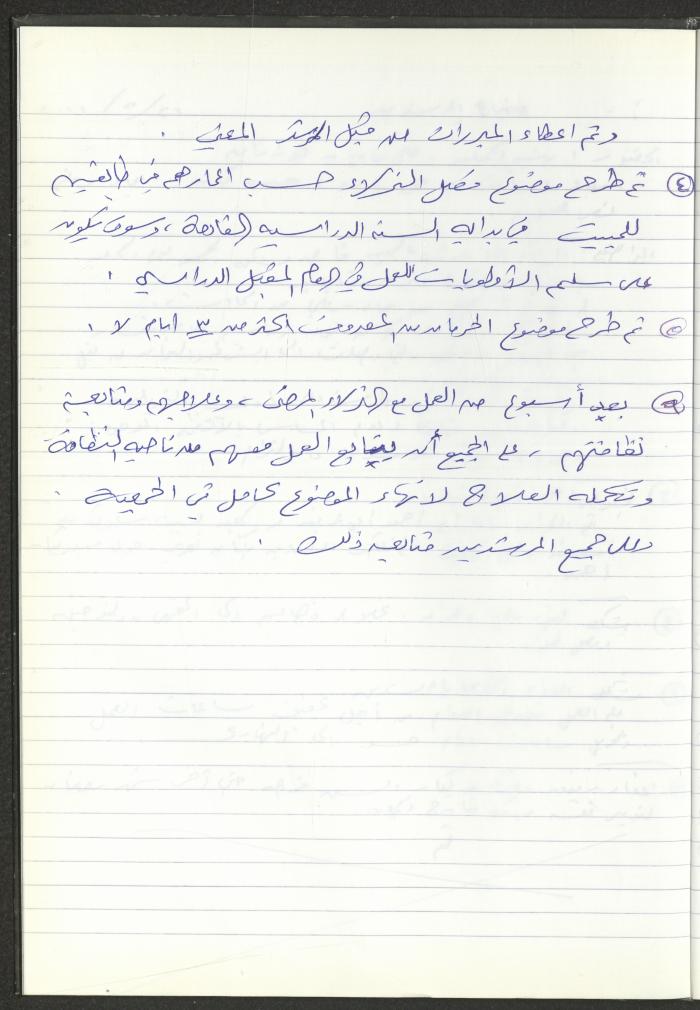 وتم اعطاء المبررات من قبل المرشد المعني .
٤ تم طرح موضوع فصل النزلاء حسب اعمارهم في طابقين
للمبيت في بداية السنه الدراسيه القادمة ، وسوف تكون
على سلم الأولويات للعمل في العام المقبل الدراسي .
٥ تم طرح موضوع الحرمان من المصروف اكثر من ٣ ايام لا .
بعد أسبوع من العمل مع النزلاء المرضى ، وعلاجهم ومتابعة
نظافتهم ، على الجميع أن يتابع العمل معهم من ناحيه النظافة
وتكمله العلاج لانهاء الموضوع بكامل في الجمعيه .
وعلى جميع المرشدين متابعه ذلك .